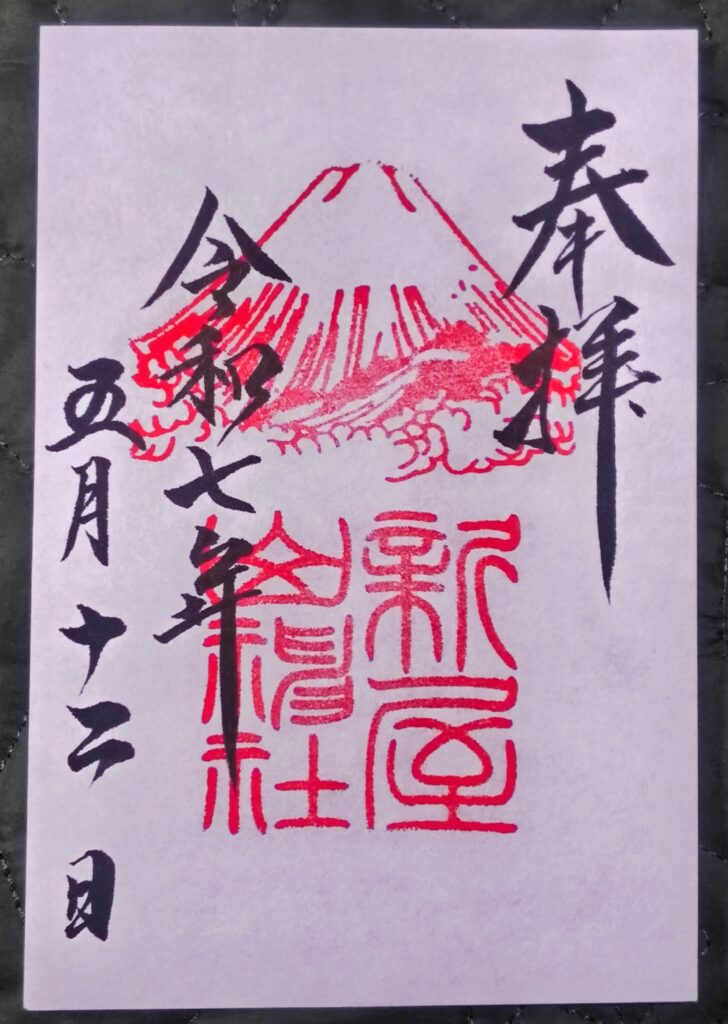 奉拝
新屋
山神社
令和七年
五月十二日